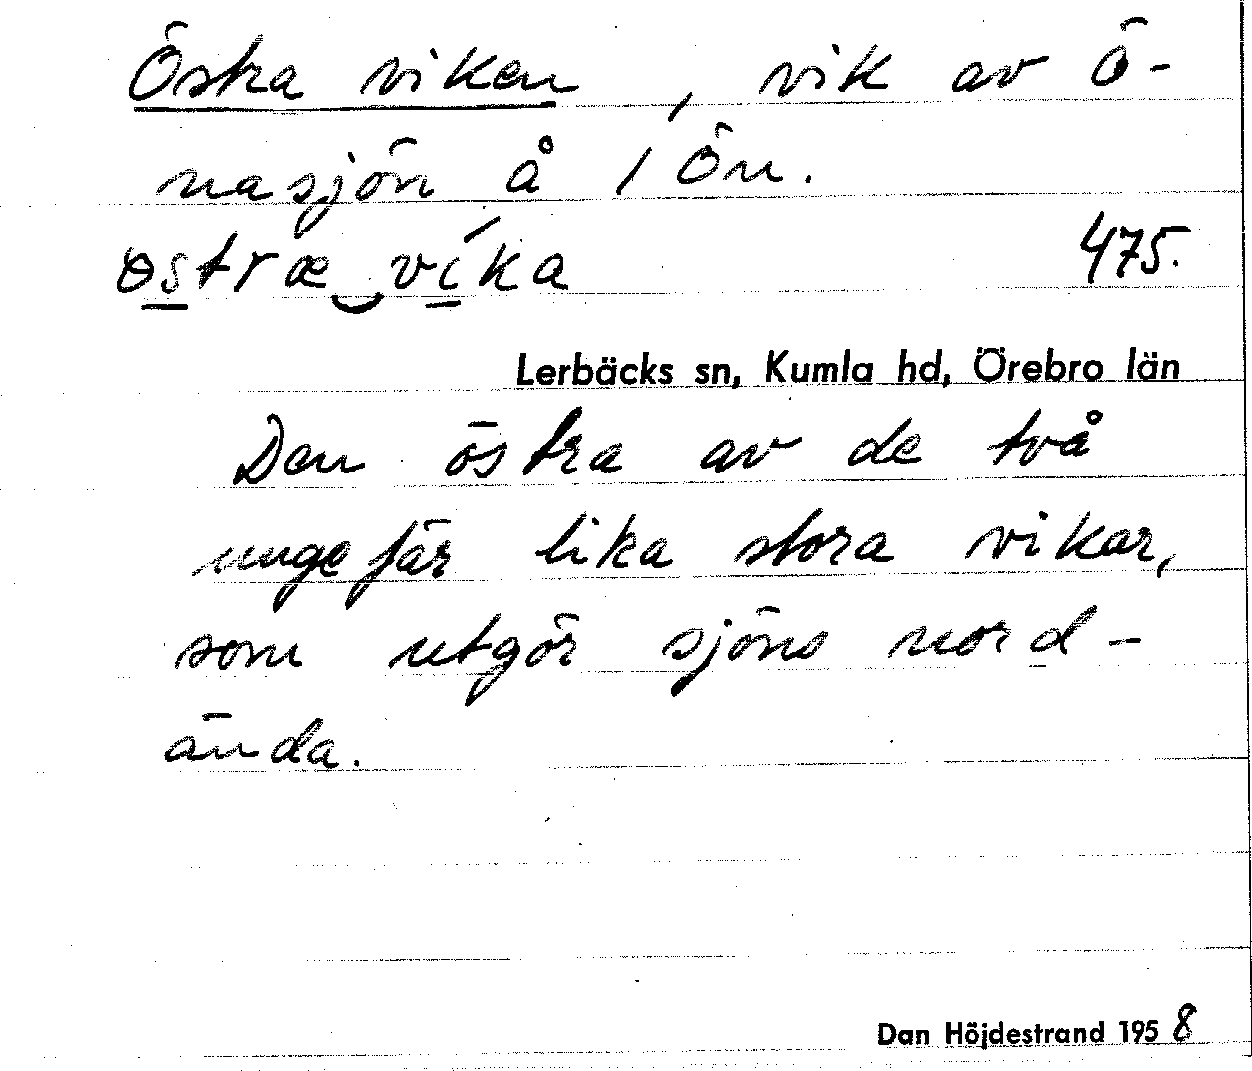 Östra viken, vik av Ö-
nasjön å 1 Ön.
østræ‿víka 475.
Lerbäcks sn, Kumla hd, Örebro län
Den östra av de två
ungefär lika stora vikar,
som utgör sjöns nord-
ända.
Dan Höjdestrand 1958